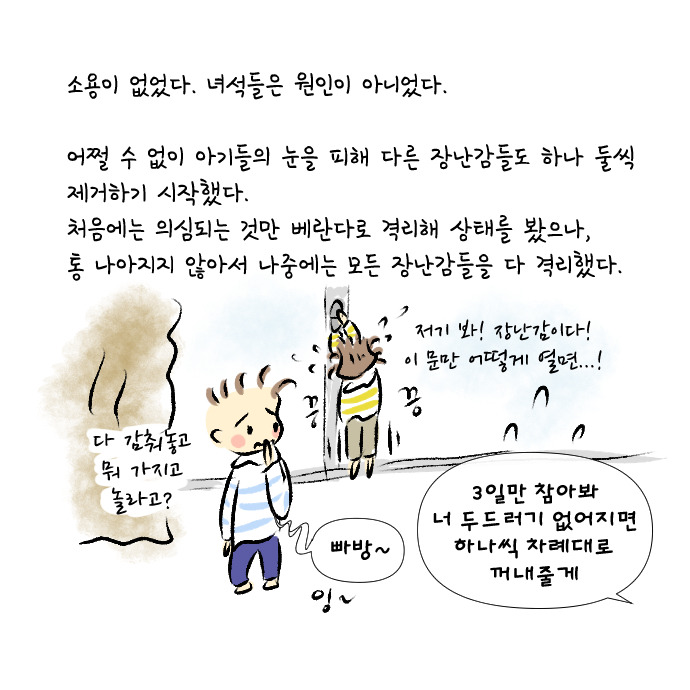 소용이 없었다. 녀석들은 원인이 아니었다.
어쩔 수 없이 아기들의 눈을 피해 다른 장난감들도 하나 둘씩
제거하기 시작했다.
처음에는 의심되는 것만 베란다로 격리해 상태를 봤으나,
통 나아지지 않아서 나중에는 모든 장난감들을 다 격리했다.
저기 봐! 장난감이다!
이 문만 어떻게 열면...!
끙
끙
다 감춰놓고
뭐 가지고
놀라고?
3일만 참아봐
너 두드러기 없어지면
하나씩 차례대로
꺼내줄게
빠방~
잉~